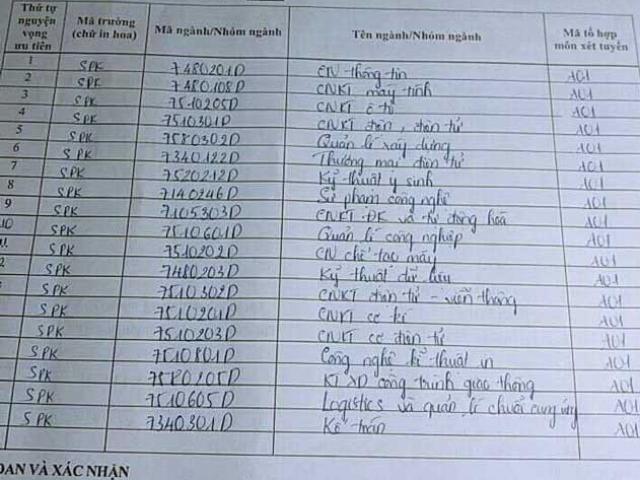 Thứ tự nguyện vọng ưu tiên | Mã trường (chữ in hoa) | Mã ngành/Nhóm ngành | Tên ngành/Nhóm ngành | Mã tổ hợp môn xét tuyển
1 SPK 7480201D CN thông tin A01
2 SPK 7480108D CNKT máy tính A01
3 SPK 7510205D CNKT ô tô A01
4 SPK 7510301D CNKT điện, điện tử A01
5 SPK 7580302D Quản lí xây dựng A01
6 SPK 7340122D Thương mại điện tử A01
7 SPK 7520212D Kỹ thuật y sinh A01
8 SPK 7140246D Sư phạm công nghệ A01
9 SPK 7105303D CNKT ĐK và tự động hoá A01
10 SPK 7510601D Quản lí công nghiệp A01
SPK 7510202D CN chế tạo máy A01
2 SPK 7480203D Kỹ thuật dữ liệu A01
SPK 7510302D CNKT điện tử - viễn thông A01
SPK 7510201D CNKT cơ khí A01
SPK 7510203D CNKT cơ điện tử A01
SPK 7510801D Công nghệ kĩ thuật in A01
SPK 7580205D KT XD công trình giao thông A01
SPK 7510605D Logistics và quản lí chuỗi cung ứng A01
SPK 7340301D Kế toán A01
ĐOAN VÀ XÁC NHẬN